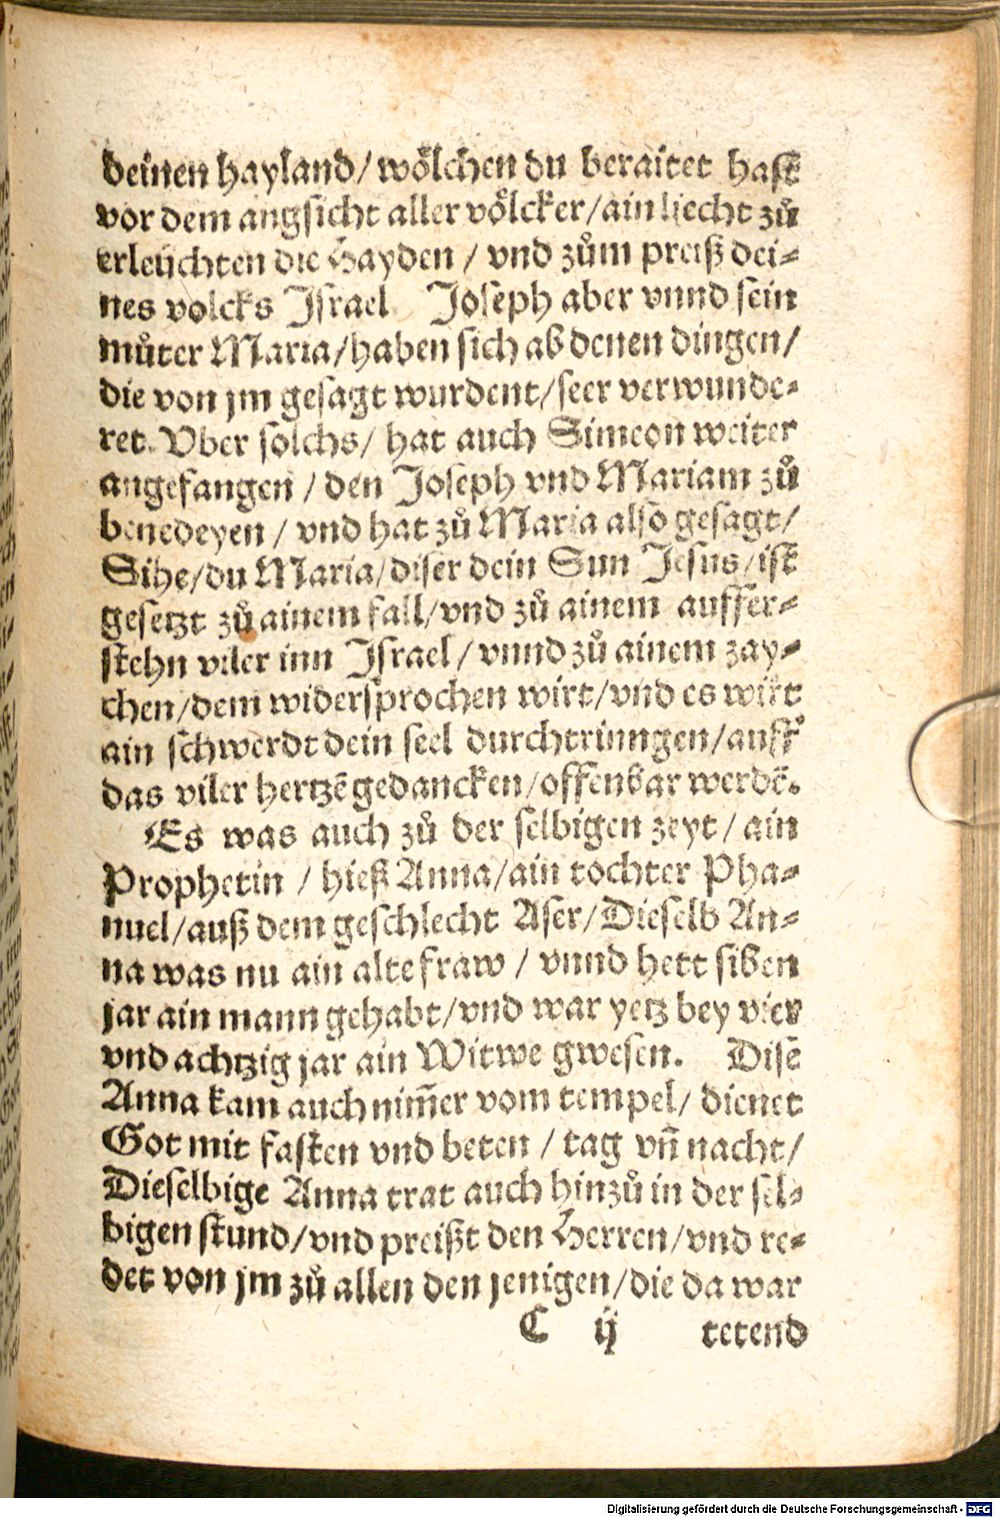 deinen hayland/ wölchen du beraitet hast
vor dem angsicht aller völcker/ain liecht zů
erleüchten die Hayden / vnd zům preiß dei⸗
nes volcks Israel. Joseph aber vnnd sein
můter Maria/haben sich ab denen dingen/
die von jm gesagt wurdent/seer verwunde⸗
ret. Vber solchs/ hat auch Simeon weiter
angefangen / den Joseph vnd Mariam zů
benedeyen / vnd hat zů Maria also gesagt/
Sihe/du Maria/diser dein Sun Jesus/ist
gesetzt zů ainem fall/vnd zů ainem auffer⸗
stehn viler inn Israel / vnnd zů ainem zay⸗
chen/dem widersprochen wirt/vnd es wirt
ain schwerdt dein seel durchtringen/auff
das viler hertzē gedancken/offenbar werdē.
Es was auch zů der selbigen zeyt / ain
Prophetin / hieß Anna/ain tochter Pha⸗
nuel/auß dem geschlecht Aser/Dieselb An⸗
na was nu ain alte fraw / vnnd hett siben
jar ain mann gehabt/vnd war yetz bey vier
vnd achtzig jar ain Witwe gwesen. Disē
Anna kam auch nim̄er vom tempel/ dienet
Got mit fasten vnd beten / tag vn̄ nacht/
Dieselbige Anna trat auch hinzů in der sel⸗
bigen stund/vnd preißt den Herren/vnd re⸗
det von jm zů allen den jenigen/die da war
C ij tetend
Digitalisierung gefördert durch die Deutsche Forschungsgemeinschaft - DFG